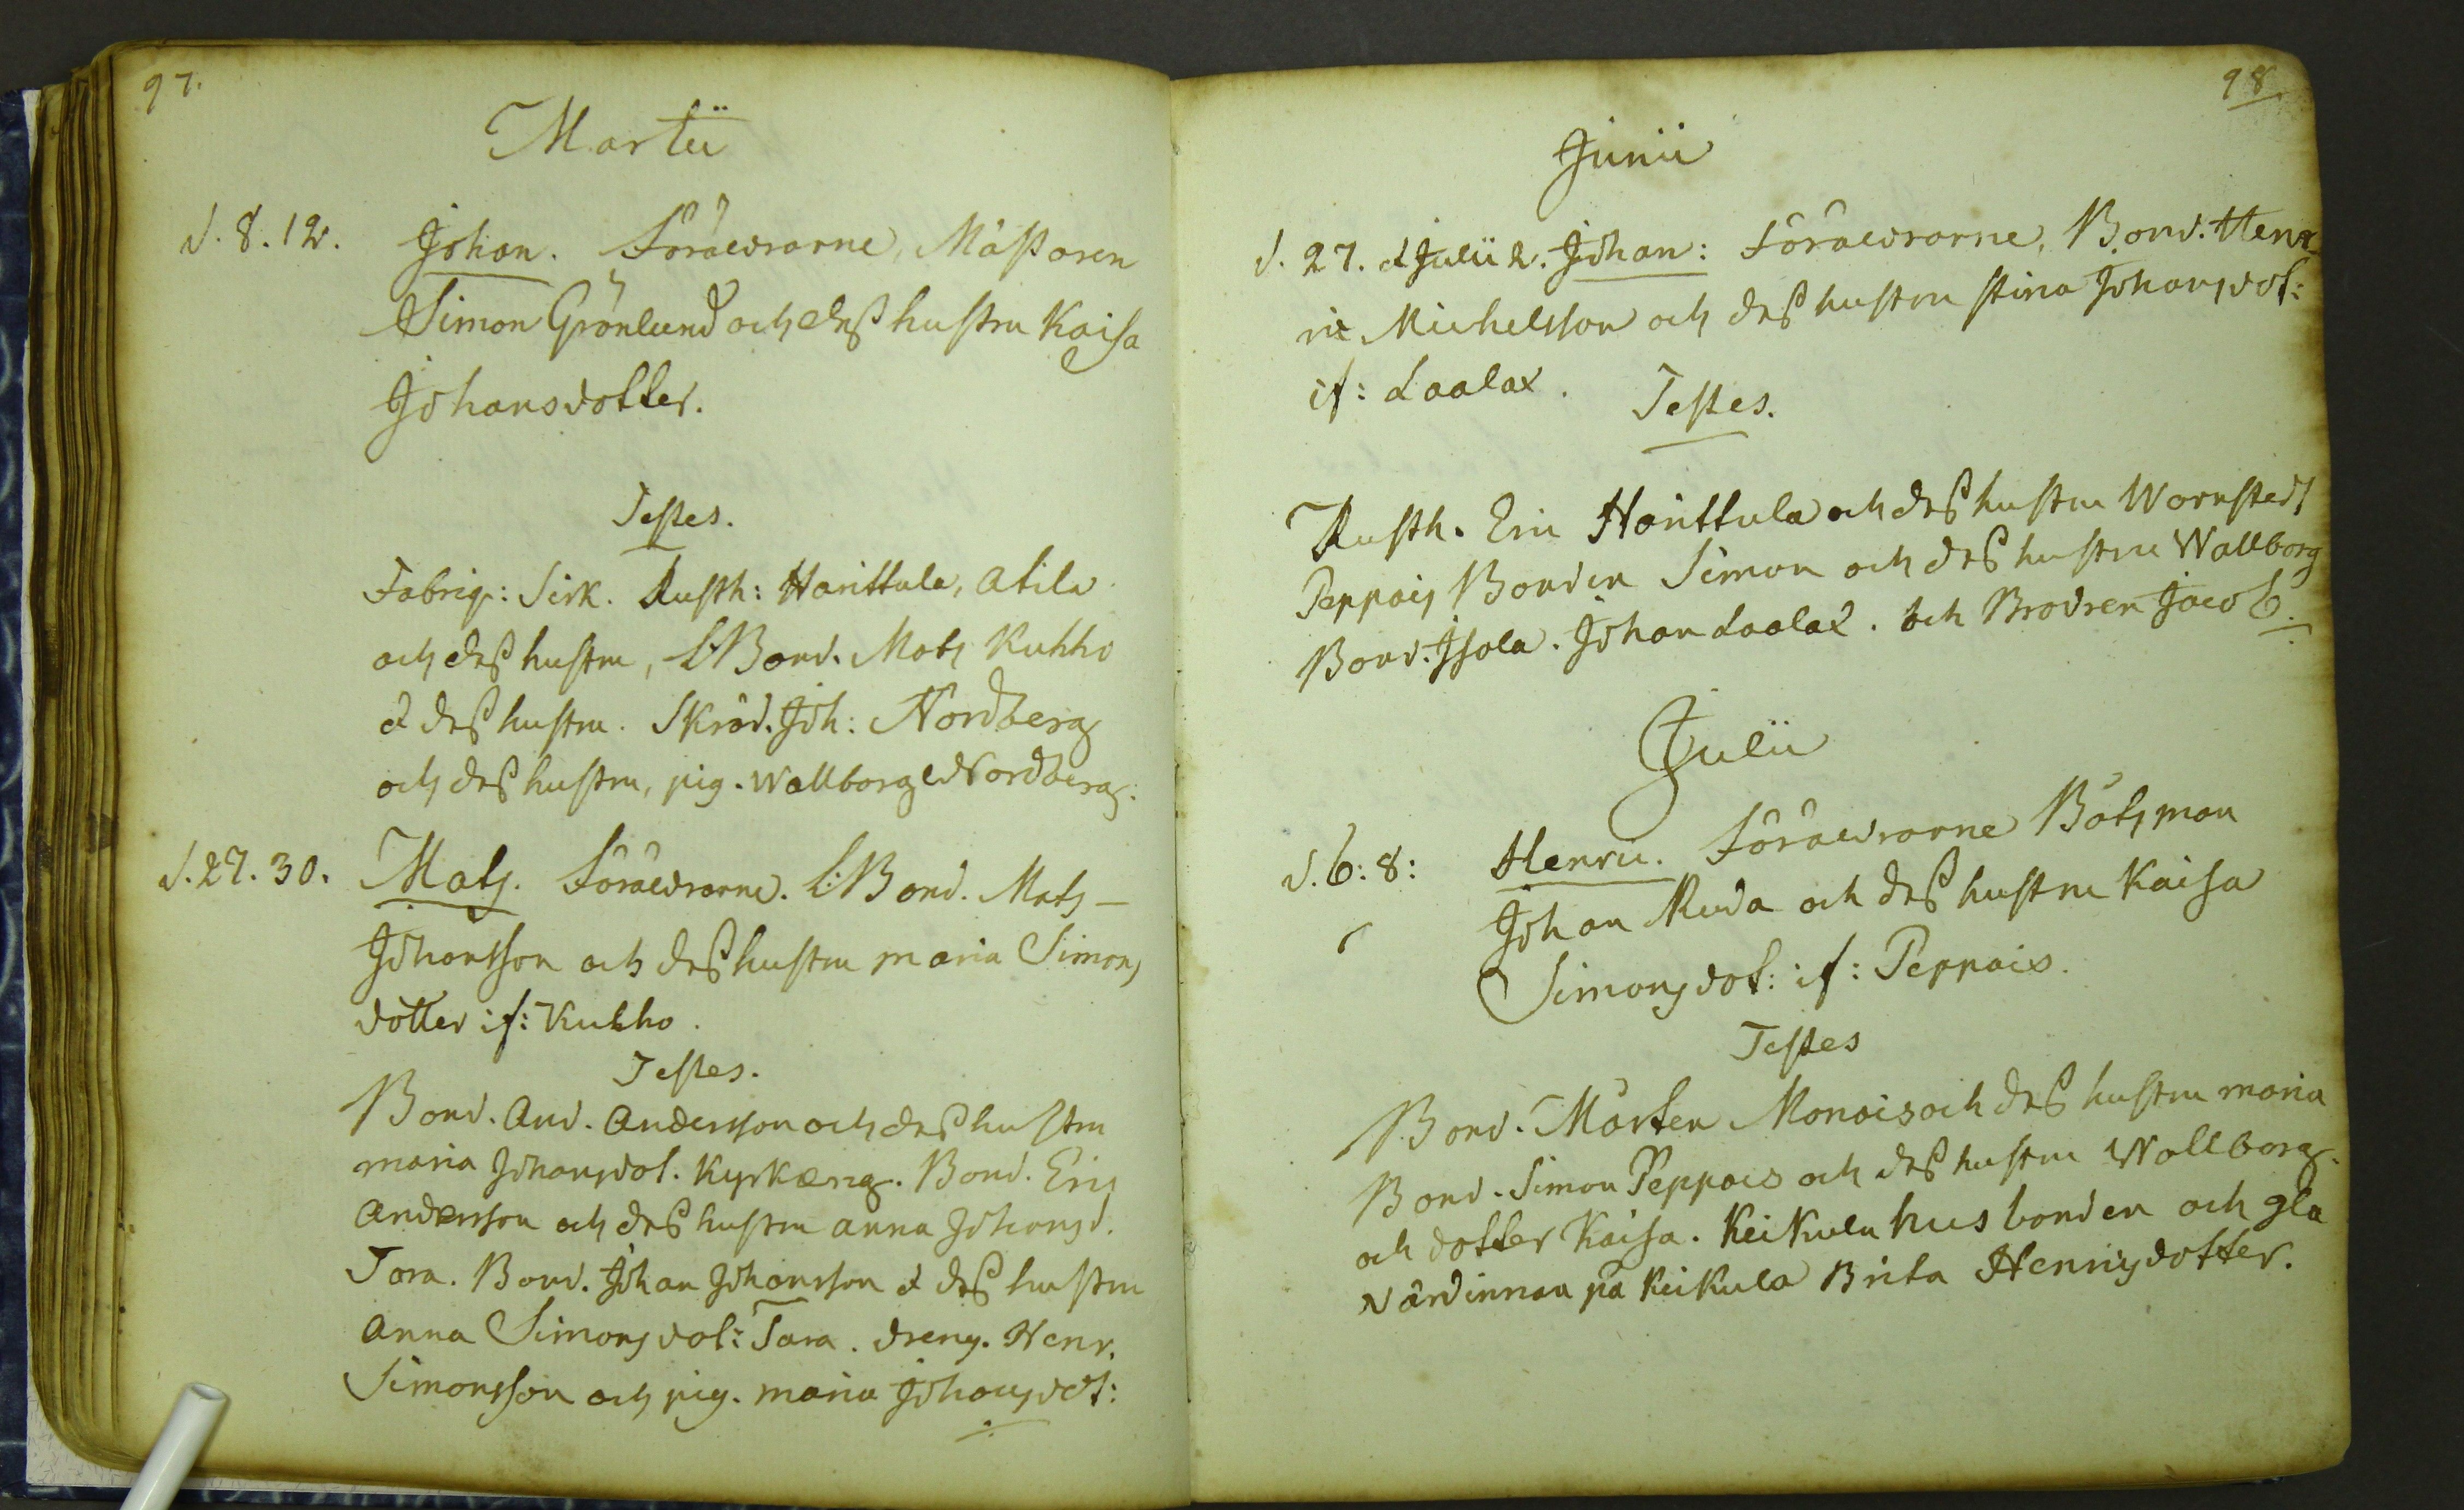 97.
Martii
d. 8. 12. Johan. Föräldrarne, Mästaren
Simon Grönlund och dess hustru Kaisa
Johansdotter.
Testes.
Fabriq: Sirk. Rusth: Harittula, Atila
och dess hustru, L:Bond. Mats Kuhho
& dess hustru. Skräd. Joh: Nordberg
och dess hustru, pig. Wallborg Nordberg:
d. 27. 30. Mats. Föräldrarne. L:Bond. Mats
Johansson och dess hustru maria Simons
dotter if: Kuhho.
Testes.
Bond. And. Andersson och dess hustru
maria Johansdot. Kyrkæng. Bond. Eric
Andersson och dess hustru anna Johansd.
Tara. Bond. Johan Johansson & dess hustru
Anna Simonsdot: Tara. dreng. Henr.
Simonsson och pig. maria Johansdot:
98
Junii
d. 27. & Julii 2. Johan: Föräldrarne, Bond. Hen
ric Michelsson och dess hustru Stina Johansdot:
if: Laalax.
Testes.
Rusth. Eric Harittula och dess hustru Wornstedt
Peppois Bonden Simon och dess hustru Wallborg
Bond. Isola. Johan Laalax. och Brodren Jacob
Julii
d. 6: 8: Henric. Föräldrarne Båtsman
Johan Ruda och dess hustru Kaisa
Simonsdot: if: Peppois.
Testes
Bond. Mårten Monois och dess hustru maria
Bond. Simon Peppois och dess hustru Wallborg.
och dotter Kaisa. Keikula husbonden och gla
värdinnan på Keikula Brita Henricsdotter.